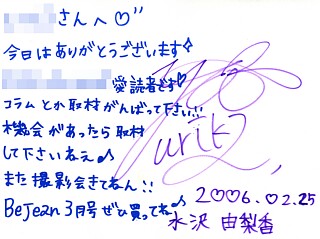 さんへ♡"
今日はありがとうございます
愛読者です♡
コラムとか取材がんばって下さい!!
機会があったら取材
して下さいねぇ♪
また撮影会きてねん!!
BeJean 3月号ぜひ買ってね♪
urika
2006.02.25
水沢 由梨香